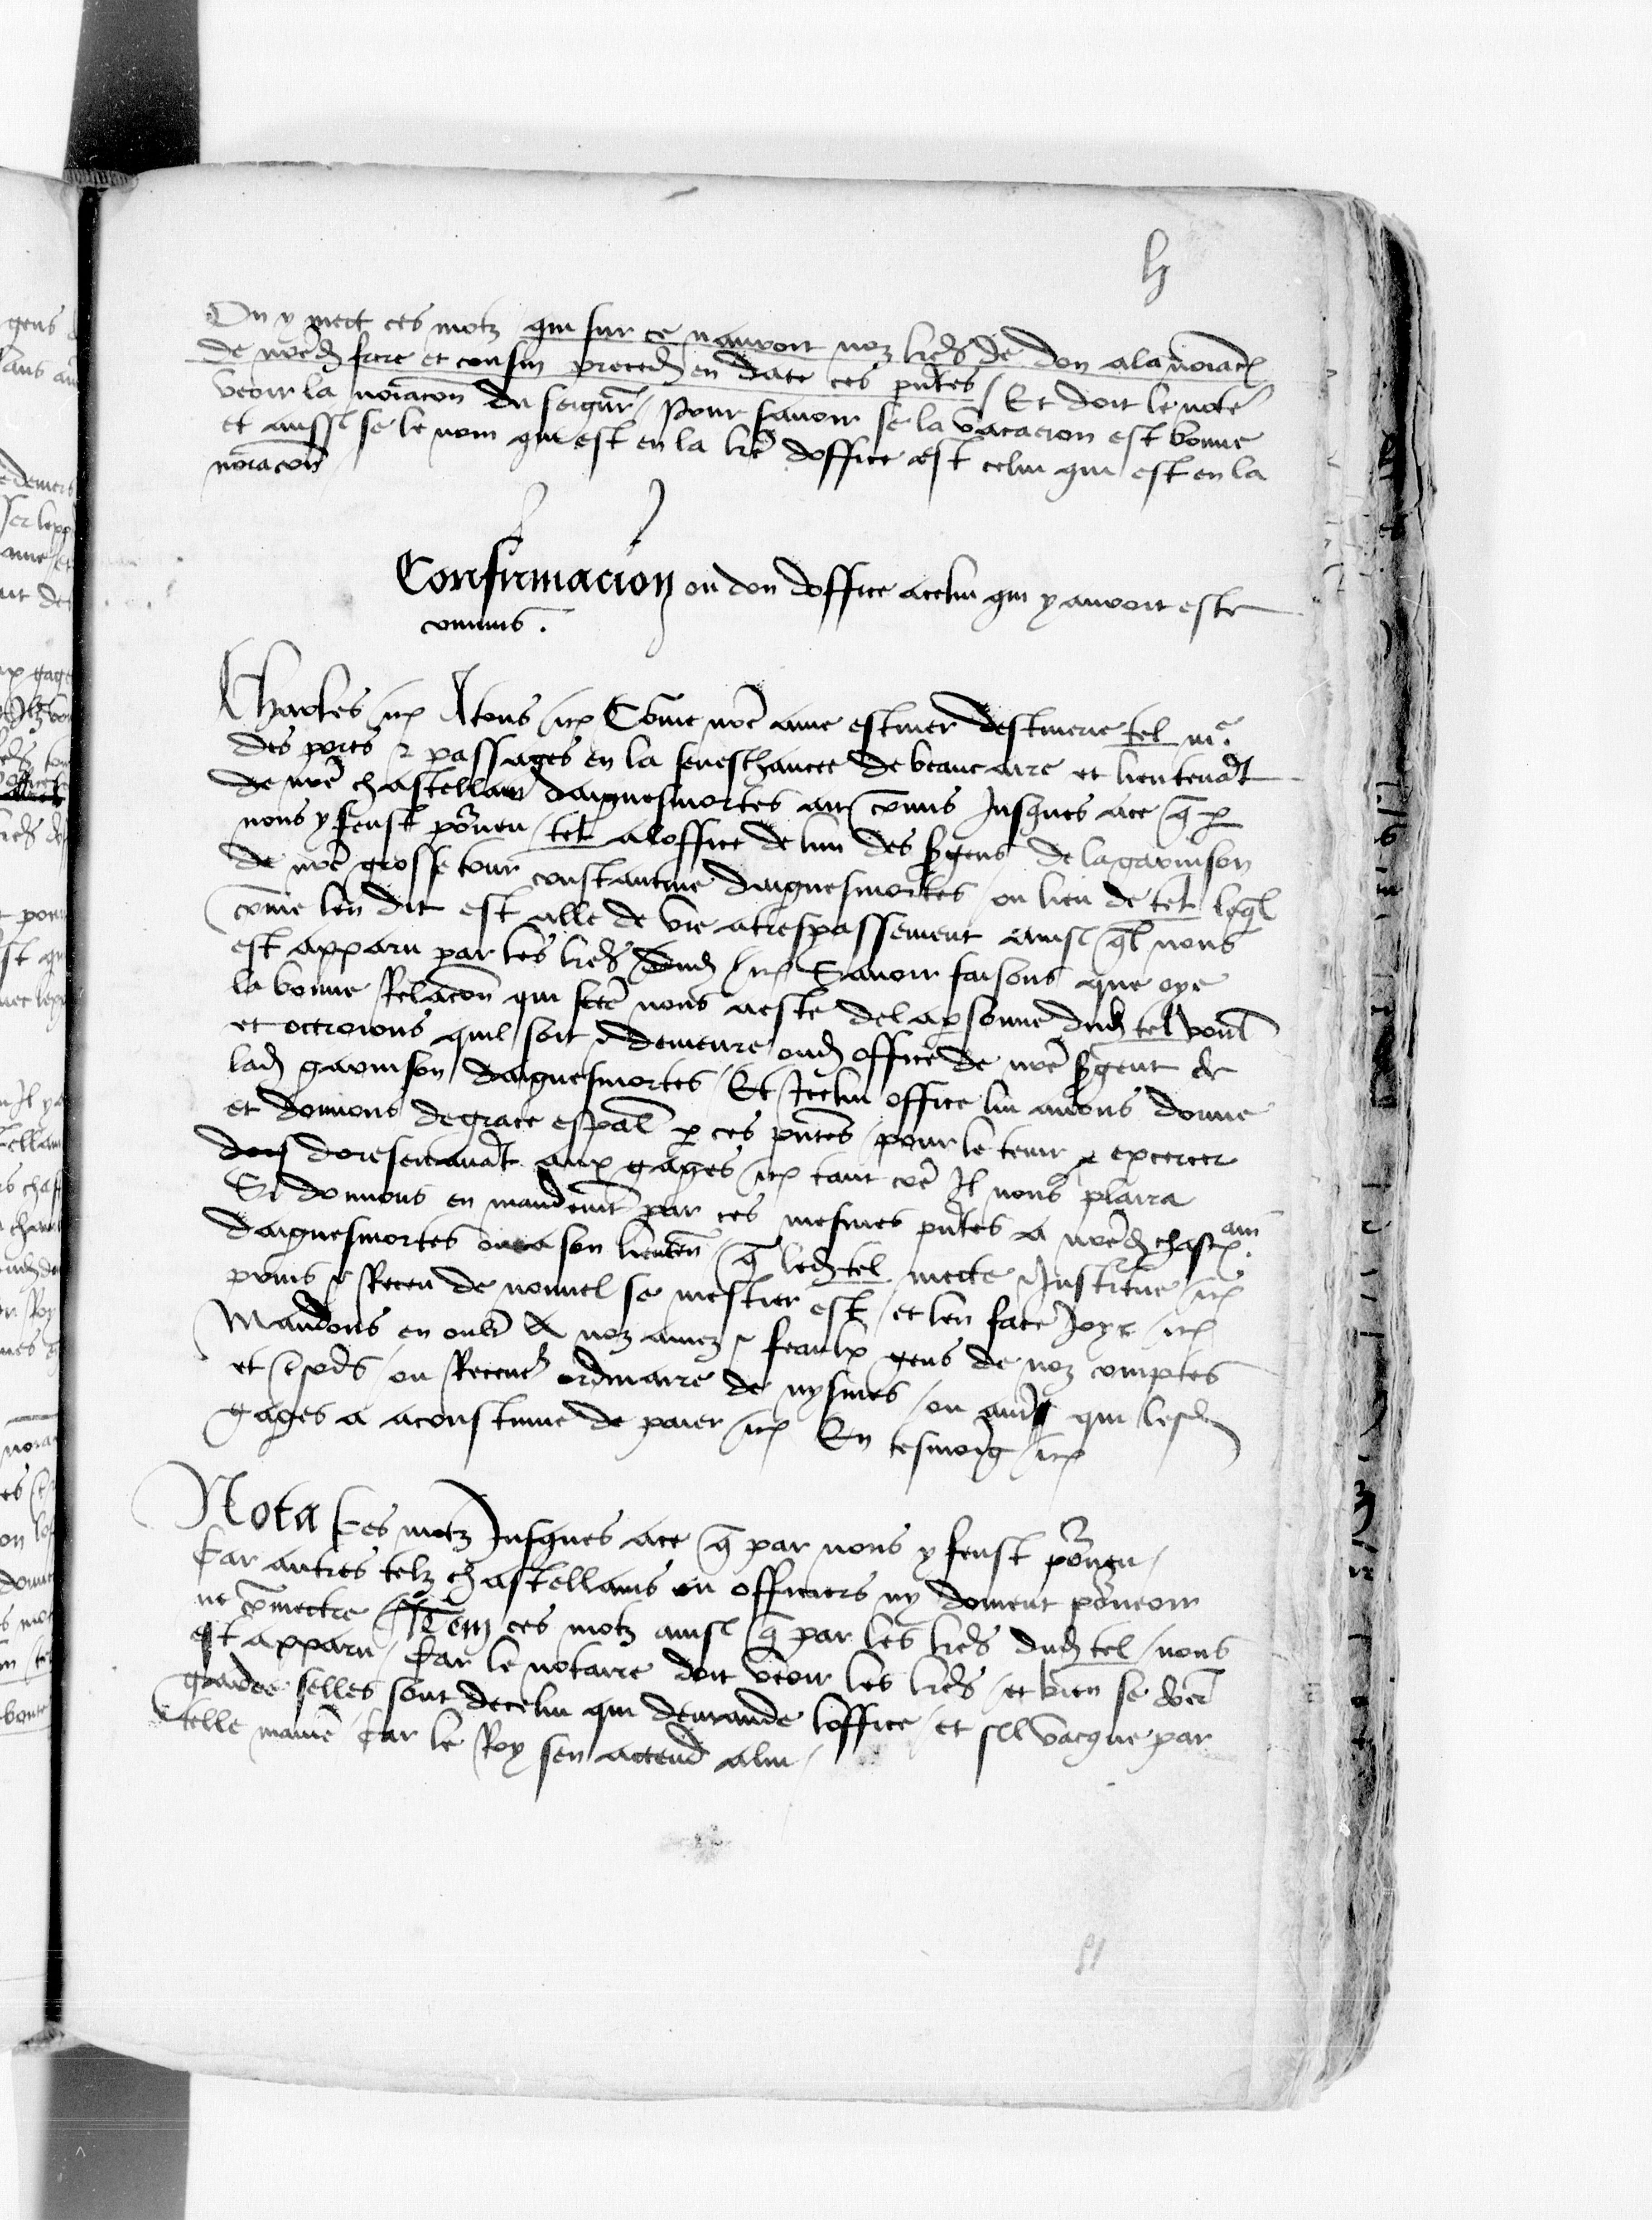 On y mect ces motz qui sur ce nauroit noz lres de don ala noiacon
de nred frere et cousin preced en date ces pntes / Et doit le notre
veoir la noiacon du seigneur / pour savoir se la vacacion est bonne
et aussi se le nom qui est en la lre doffice est celui qui est en la
noiacon
Confirmacion ou don doffice acelui qui y auroit este
commis .
Charles etc Atous etc Cõme nre ame estuier destuierie tel me
des pors et passages en la seneschaucee de beaucaire et lieutenãt
de nre chastellain daiguesmortes ait cõmis Jusques ace q̃ p
nous y feust pourveu / tel aloffice de lun des sgens de lagarnison
de nre grosse tour constantine daiguesmortes / ou lieu de tel leql
cõme len dit est alle de vie atrespassement ainsi ql nous
est apparu par les lres dud etc Savoir faisons que oye
la bonne Relacon qui fcte nous aeste dela psonne dud tel voulons
et octroions quil soit et demeure oud office de nre sgent de
lad garnison daiguesmortes / Et Icelui office lui avons donne
et donnons degrace espal p ces pntes / pour le tenir et excercer
doresenavãt aux gages etc tant cõe Il nous plaira
Si donnons en mandemt par ces mesmes pntes a nred chastain
daiguesmortes ou a son lieuten / q̃ led tel mecte et Institue etc
prins et Receu de nouvel se mestier est / et len face Joyr etc
Mandons en oultre A noz amez et feaulx gens de noz comptes
et / ou Receveur ordinaire de nysmes / ou autre qui lesd
gages a acoustume de paier etc En tesmoig etc
Nota Ces motz Jusques ace q̃ par nous y feust pourveu /
Car autres telz chastellains ou officiers ny doivent pourveoir
ne cõmectre / Item ces motz ainsi q̃ par les lres dud tel / nous
est apparu / Car le notaire doit veoir les lres / et bien se doit
garder selles sont decelui qui demande loffice / et sil vacque par
telle maniere / Car le Roy sen actend alui /